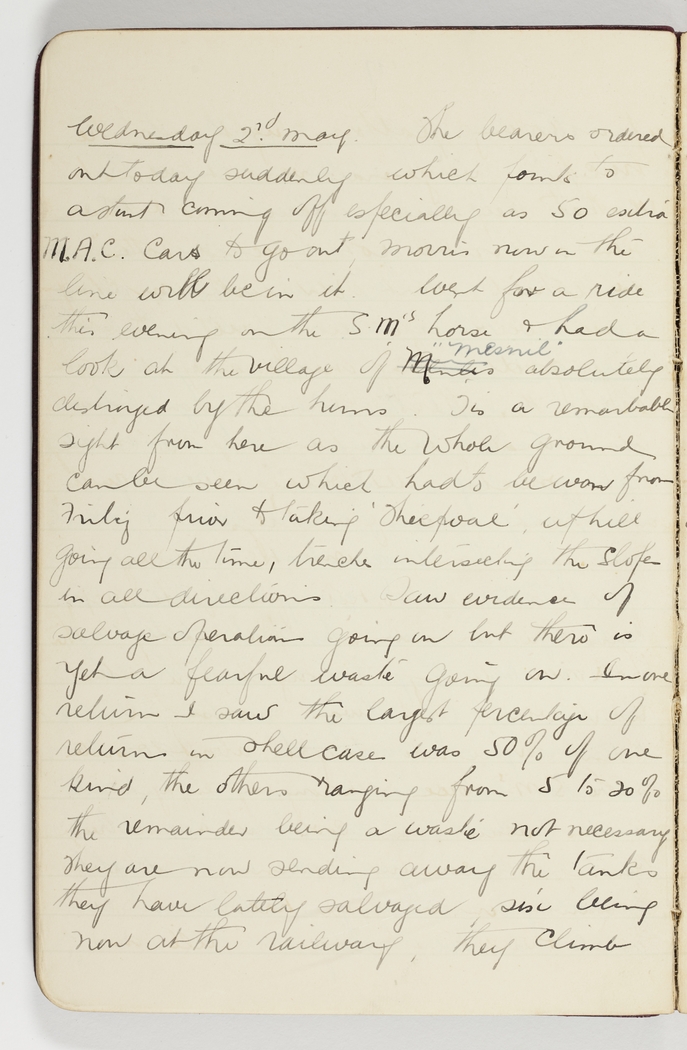 Wednesday 2nd May. The bearers ordered
out today suddenly which points to
a stunt coming off especially as 50 extra
M.A.C. Cars to go out, Morris now in the
line will be in it. Went for a ride
this evening on the S.M's horse & had a
look at the village of "Mesnil" absolutely
destroyed by the huns. Tis a remarkable
sight from here as the whole ground
can be seen which had to be won from
prior to taking 'Thiepval', uphill
going all the time, trenches intersecting the slopes
in all directions. Saw evidence of
salvage operations going on but there is
yet a fearful waste going on. In one
return I saw the largest percentage of
returns in shell cases was 50% of one
kind, the others ranging from 5 to 20%
the remainder being a waste not necessary
They are now sending away the tanks
they have lately salvaged, six being
now at the railway, they climb